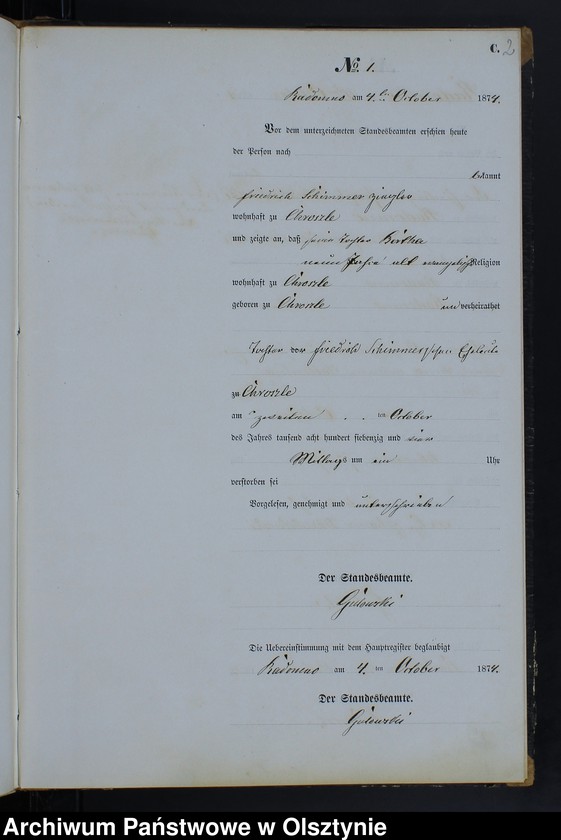 C. 2
No. 1.
Radomno am 4ten October 1874.
Vor dem unterzeichneten Standesbeamten erschien heute
der Person nach
bekannt
Friedrich Schimmer
wohnhaft zu Chroszle
und zeigte an, daß seine Tochter Bertha
neun Jahre alt evangelisch Religion
wohnhaft zu Chroszle
geboren zu Chroszle unverheirathet
Tochter der Friedrich Schimmerschen Eheleute
zu Chroszle
am zweiten ten October
des Jahres tausend acht hundert siebenzig und vier
Mittags um ein Uhr
verstorben sei
Vorgelesen, genehmigt und unterschrieben
Der Standesbeamte.
Die Uebereinstimmung mit dem Hauptregister beglaubigt
Radomno am 4. ten October 1874.
Der Standesbeamte.
Archiwum Państwowe w Olsztynie